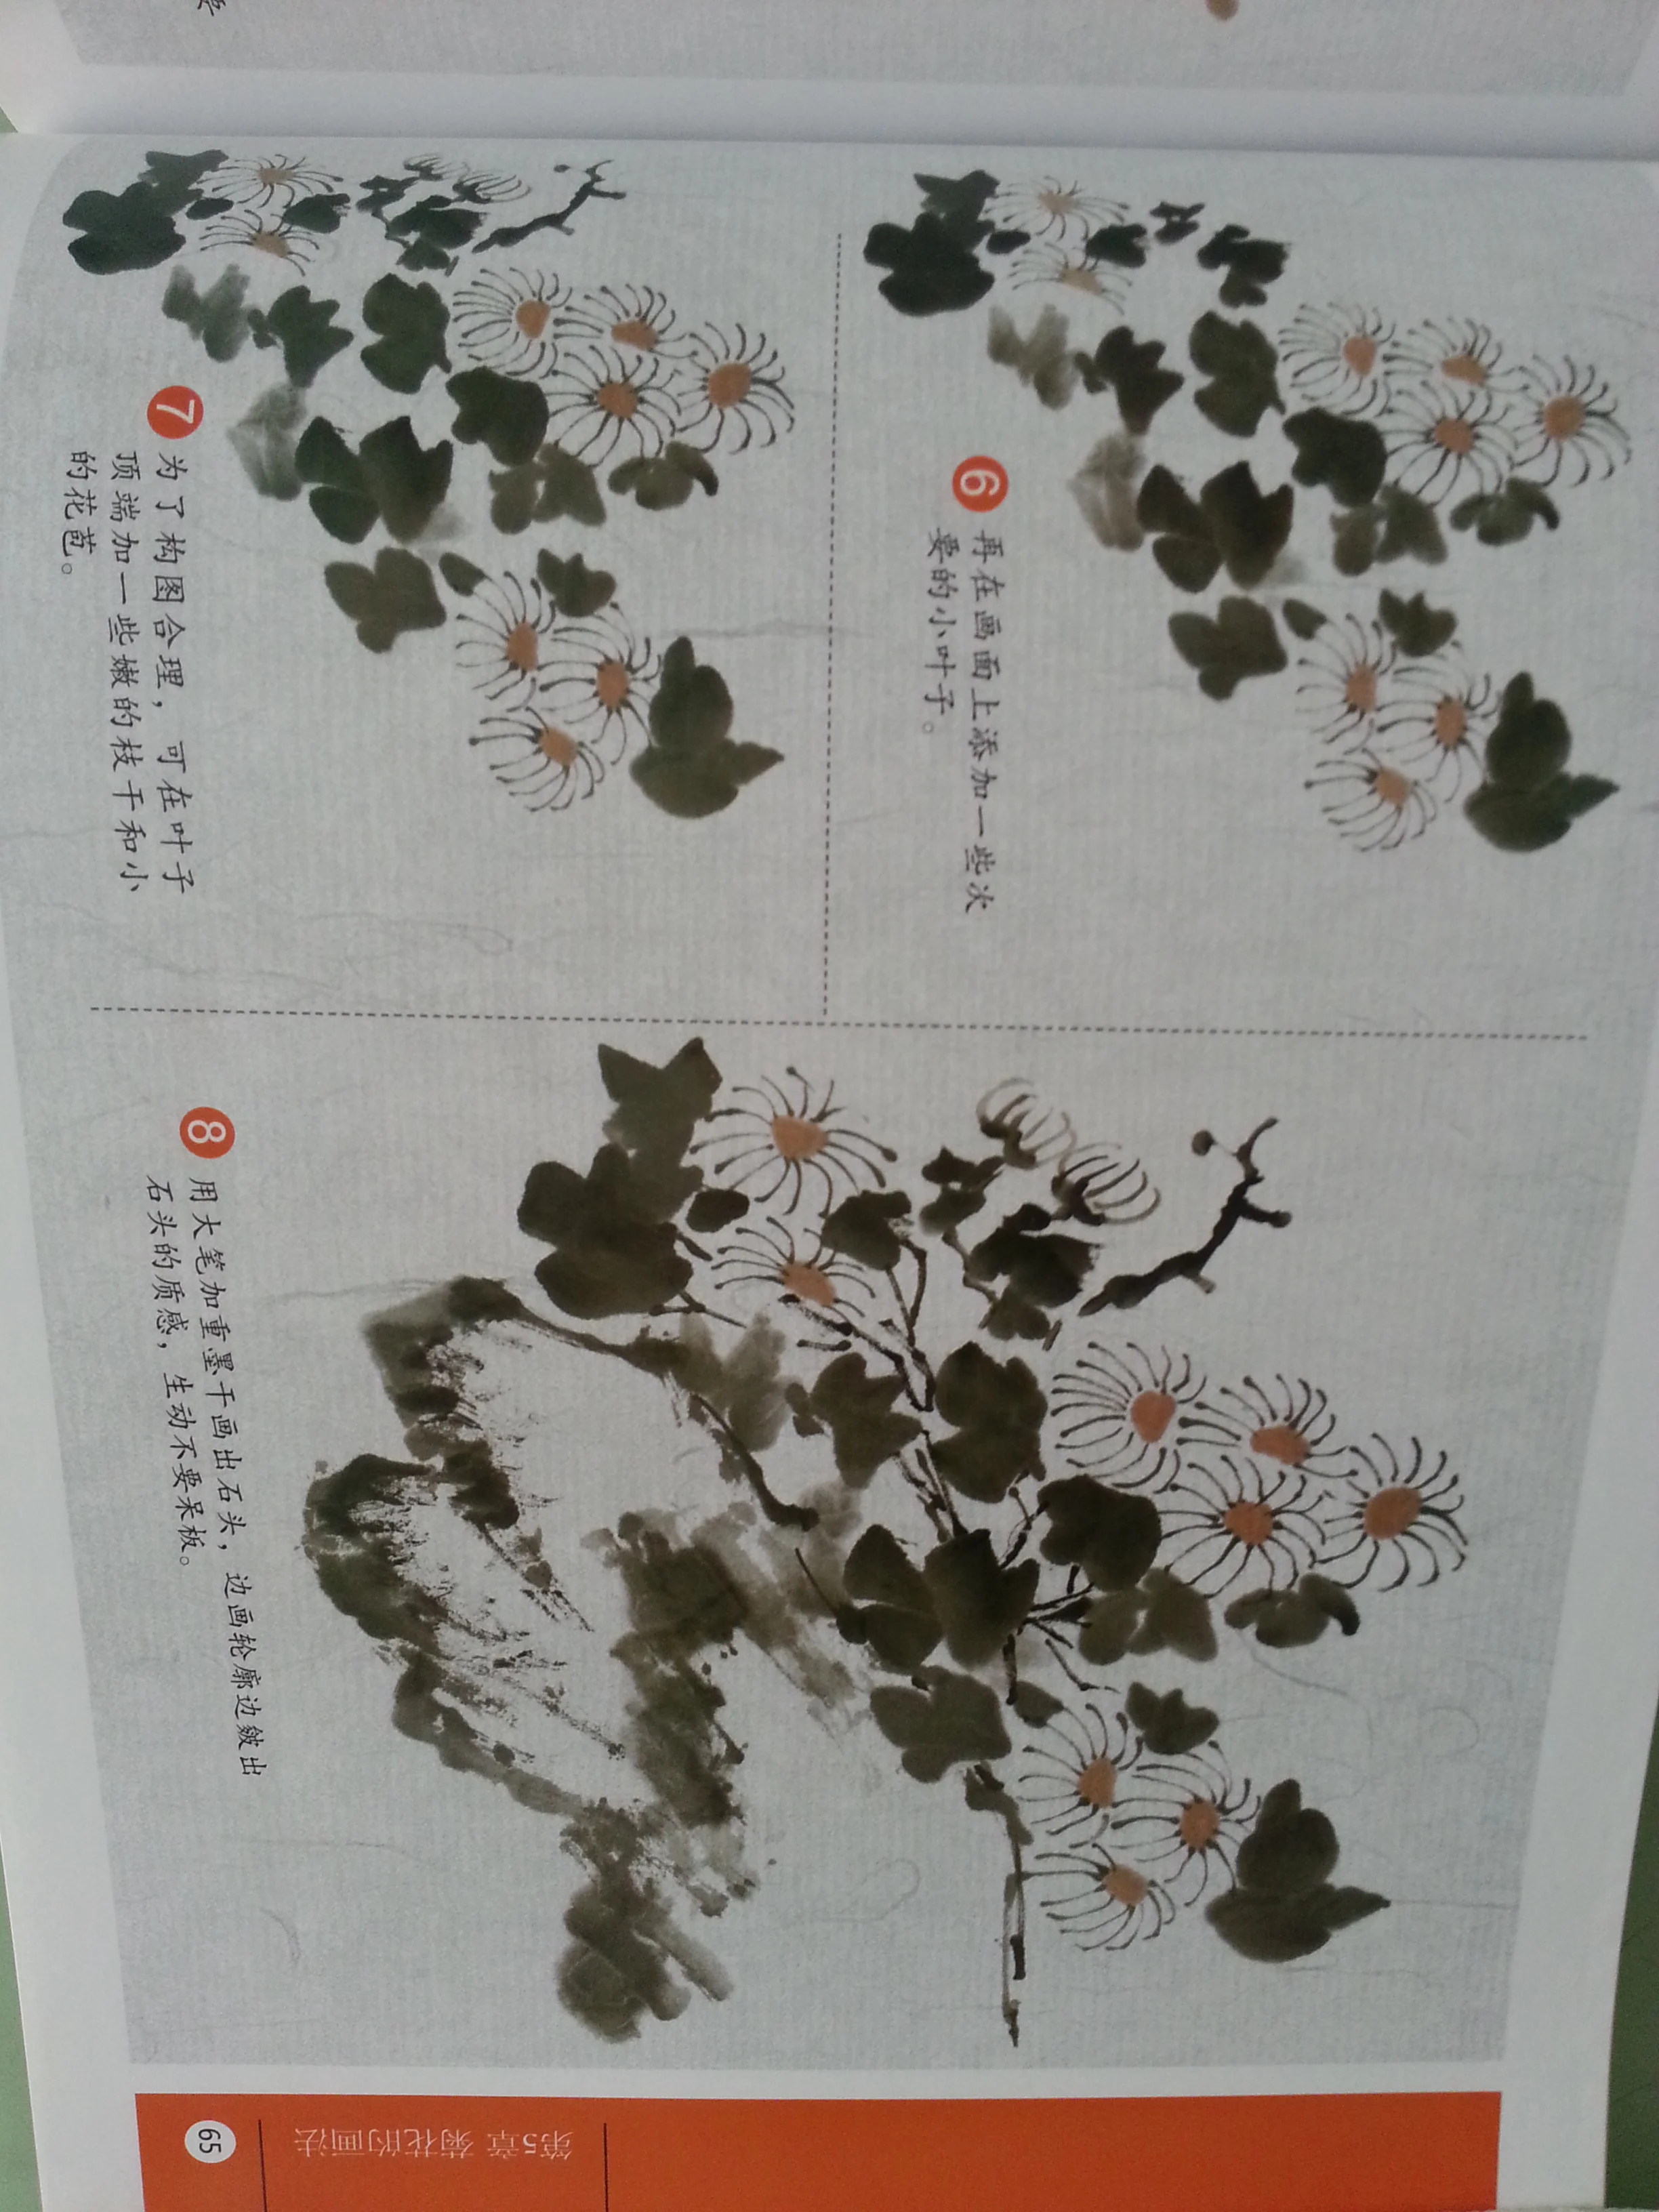 6
再在画面上添加一些次
要的小叶子。
7
为了构图合理，可在叶子
顶端加一些嫩的枝干和小
的花苞。
8
用大笔加重墨干画出石头，边画轮廓边皴出
石头的质感，生动不要呆板。
第5章 菊花的画法
65